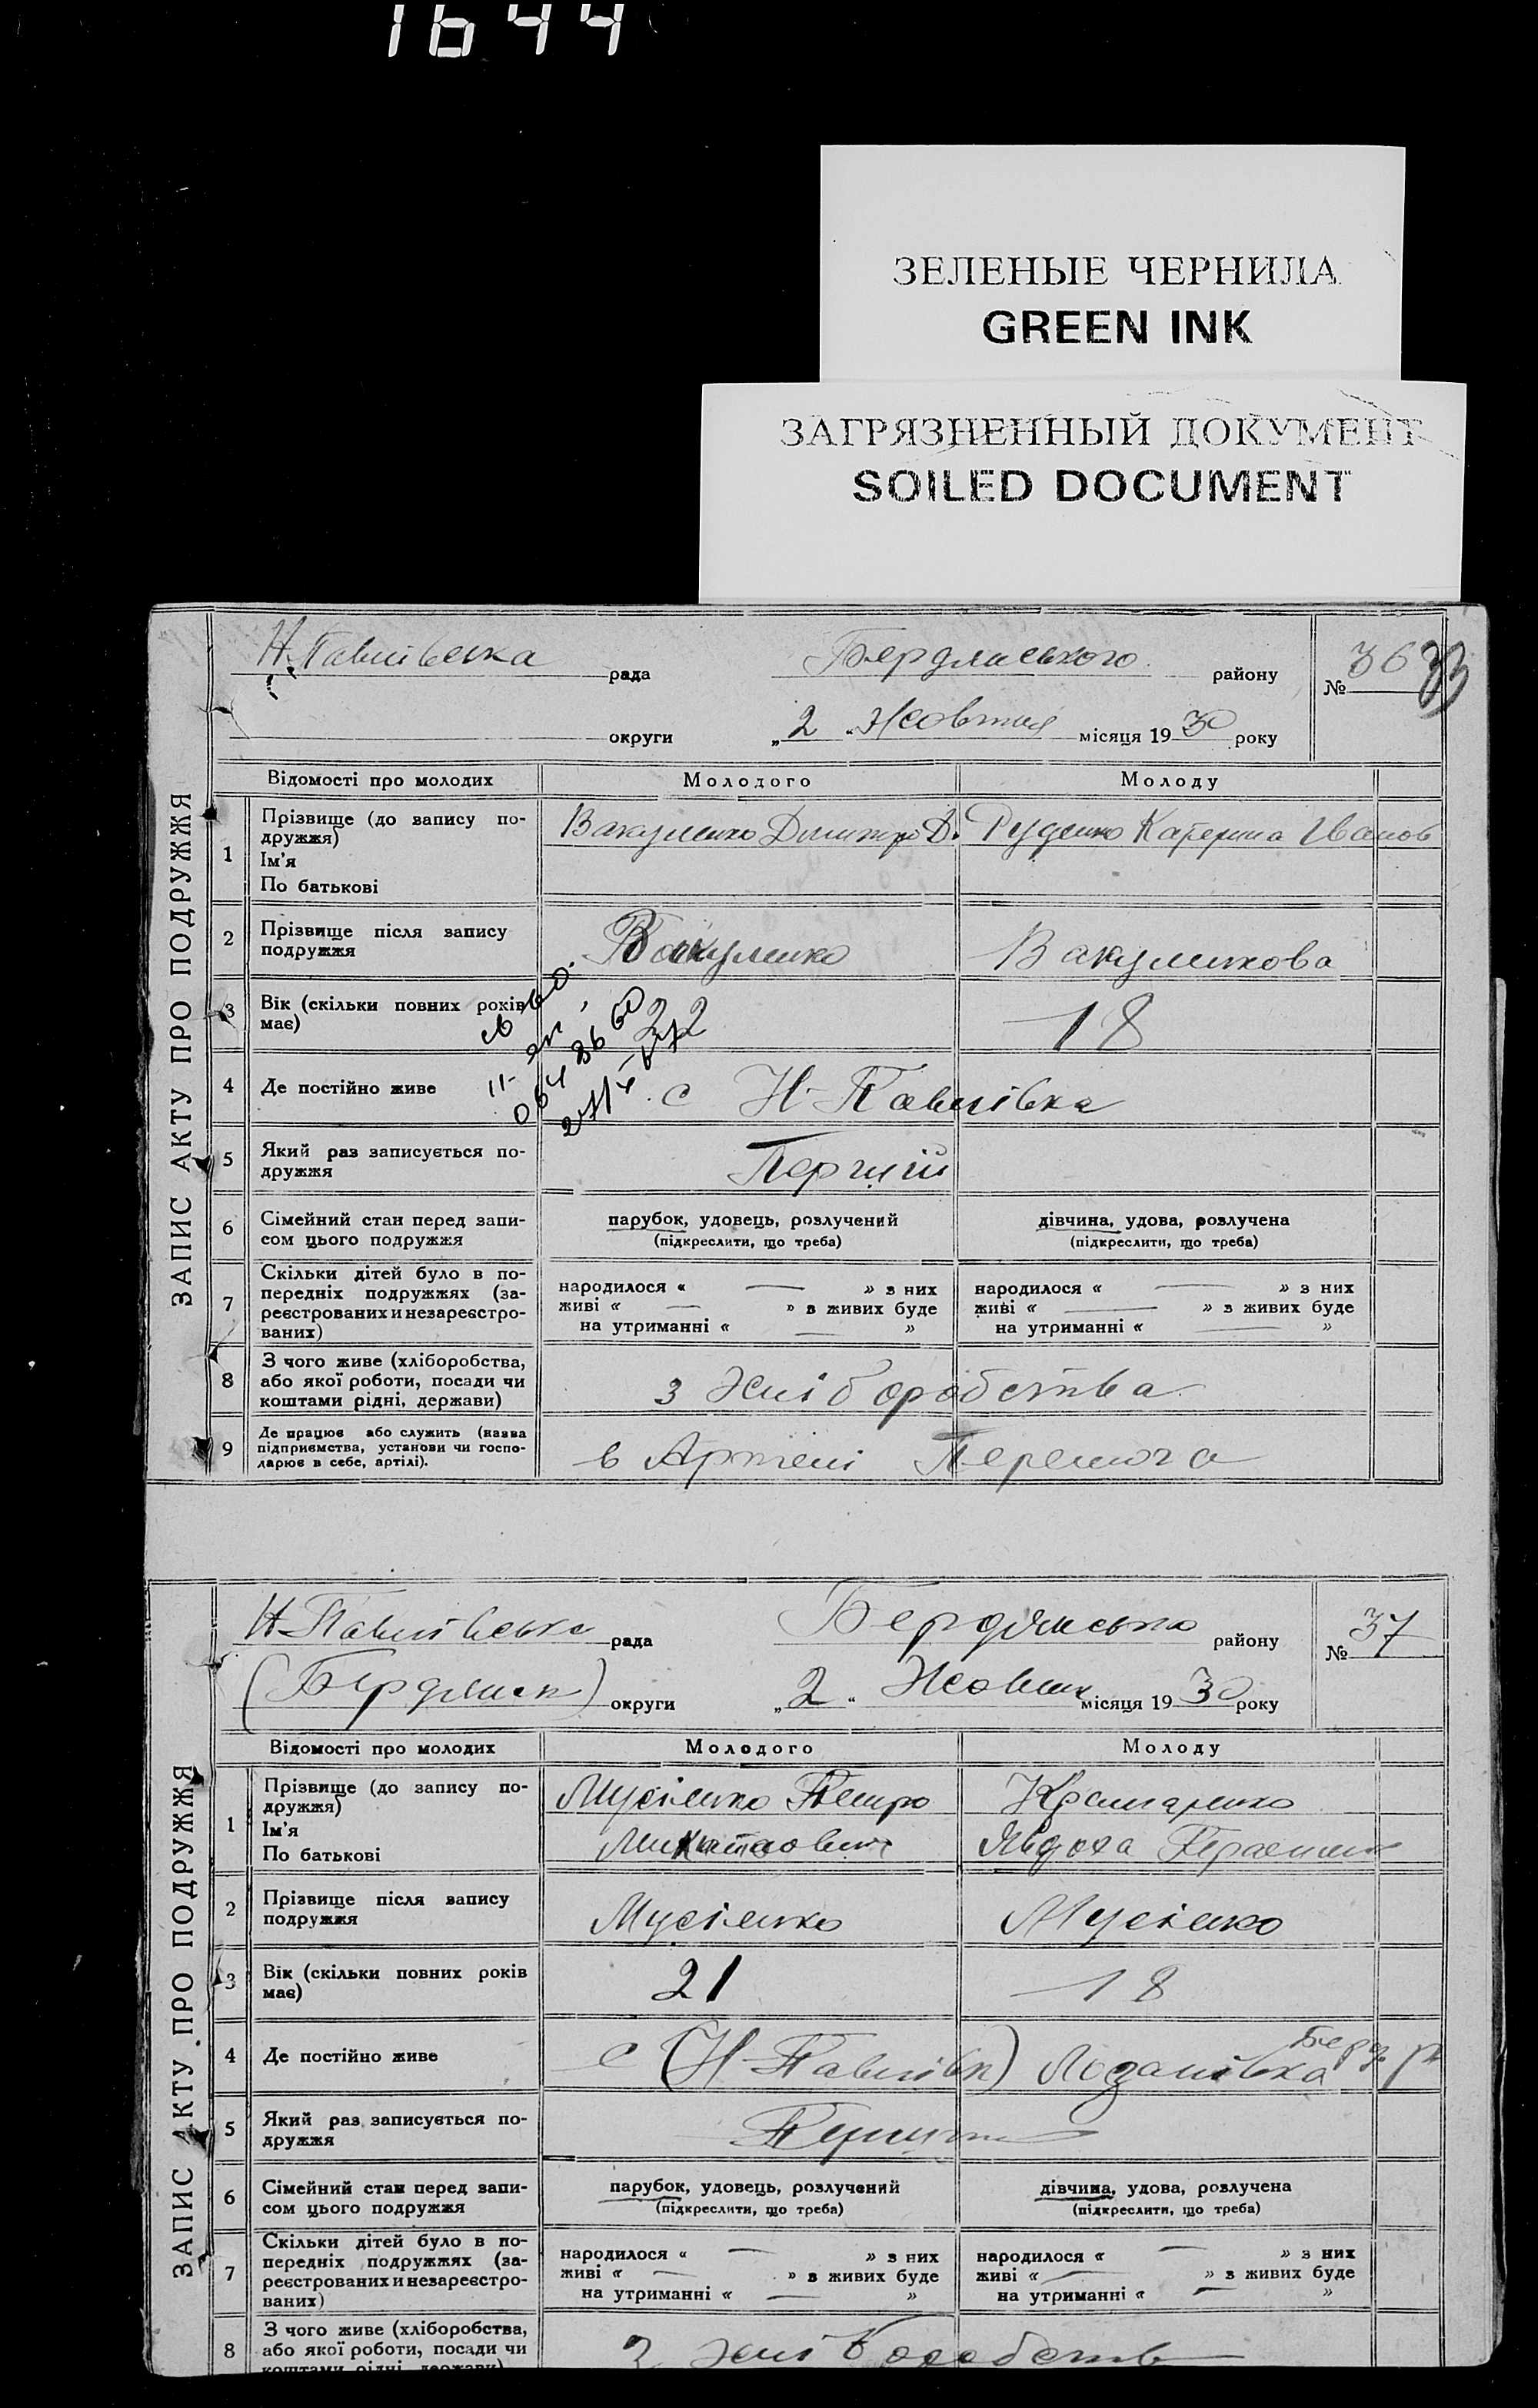 1644
ЗЕЛЕНЫЕ ЧЕРНИЛА
GREEN INK
ЗАГРЯЗНЕННЫЙ ДОКУМЕНТ
SOILED DOCUMENT
ЗАПИС АКТУ ПРО ПОДРУЖЖЯ
Н. Павлівська рада Бердянського району № 36 33
округи „2“ Жовтня місяця 1930 року
Відомості про молодих Молодого Молоду
1 Прізвище (до запису подружжя) Вакуленко Дмитро Д. Руденко Катерина Іванов
Ім'я
По батькові
2 Прізвище після запису Вакуленко Вакуленкова
подружжя
3 Вік (скільки повних років 22 18
має)
4 Де постійно живе с Н-Павлівка
5 Який раз записується по- Перший
дружжя
6 Сімейний стан перед запи- парубок, удовець, розлучений дівчина, удова, розлучена
сом цього подружжя (підкреслити, що треба) (підкреслити, що треба)
7 Скільки дітей було в по-
передніх подружжях (за- народилося « — » з них народилося « — » з них
реєстрованих и незареєстро- живі « — » з живих буде живі « — » з живих буде
ваних) на утриманні « — » на утриманні « — »
8 З чого живе (хліборобства,
або якої роботи, посади чи з Хліборобства
коштами рідні, держави)
9 Де працює або служить (назва
підприємства, установи чи госпо- в Артілі Перемога
дарює в себе, артілі).
ЗАПИС АКТУ ПРО ПОДРУЖЖЯ
Н-Павлівська рада Бердянсько району № 37
(Бердянск) округи „2“ Жовтня місяця 1930 року
Відомості про молодих Молодого Молоду
1 Прізвище (до запису по- Мусіенко Петро Крамаренко
дружжя)
Ім'я Явдоха
По батькові
2 Прізвище після запису Мусіенко Мусіенко
подружжя
3 Вік (скільки повних років 21 18
має)
4 Де постійно живе с (Н-Павлівк) Берд. р
5 Який раз записується по- Перший
дружжя
6 Сімейний стан перед запи- парубок, удовець, розлучений дівчина, удова, розлучена
сом цього подружжя (підкреслити, що треба) (підкреслити, що треба)
7 Скільки дітей було в по-
передніх подружжях (за- народилося « — » з них народилося « — » з них
реєстрованих и незареєстро- живі « — » з живих буде живі « — » з живих буде
ваних) на утриманні « — » на утриманні « — »
8 З чого живе (хліборобства,
або якої роботи, посади чи З хліборобств
коштами рідні, держави)